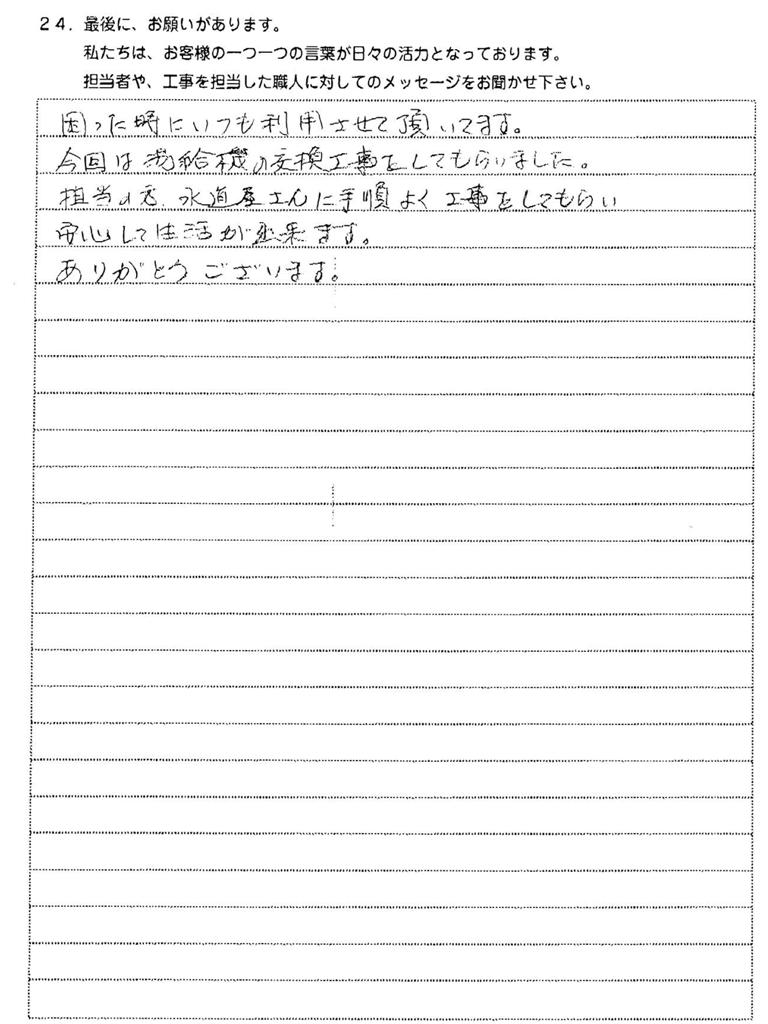 24．最後に、お願いがあります。
私たちは、お客様の一つ一つの言葉が日々の活力となっております。
担当者や、工事を担当した職人に対してのメッセージをお聞かせ下さい。
困った時にいつも利用させて頂いてます。
今回は湯給機の交換工事をしてもらいました。
担当の方、水道屋さんに手順よく工事をしてもらい
安心して生活が出来ます。
ありがとうございます。